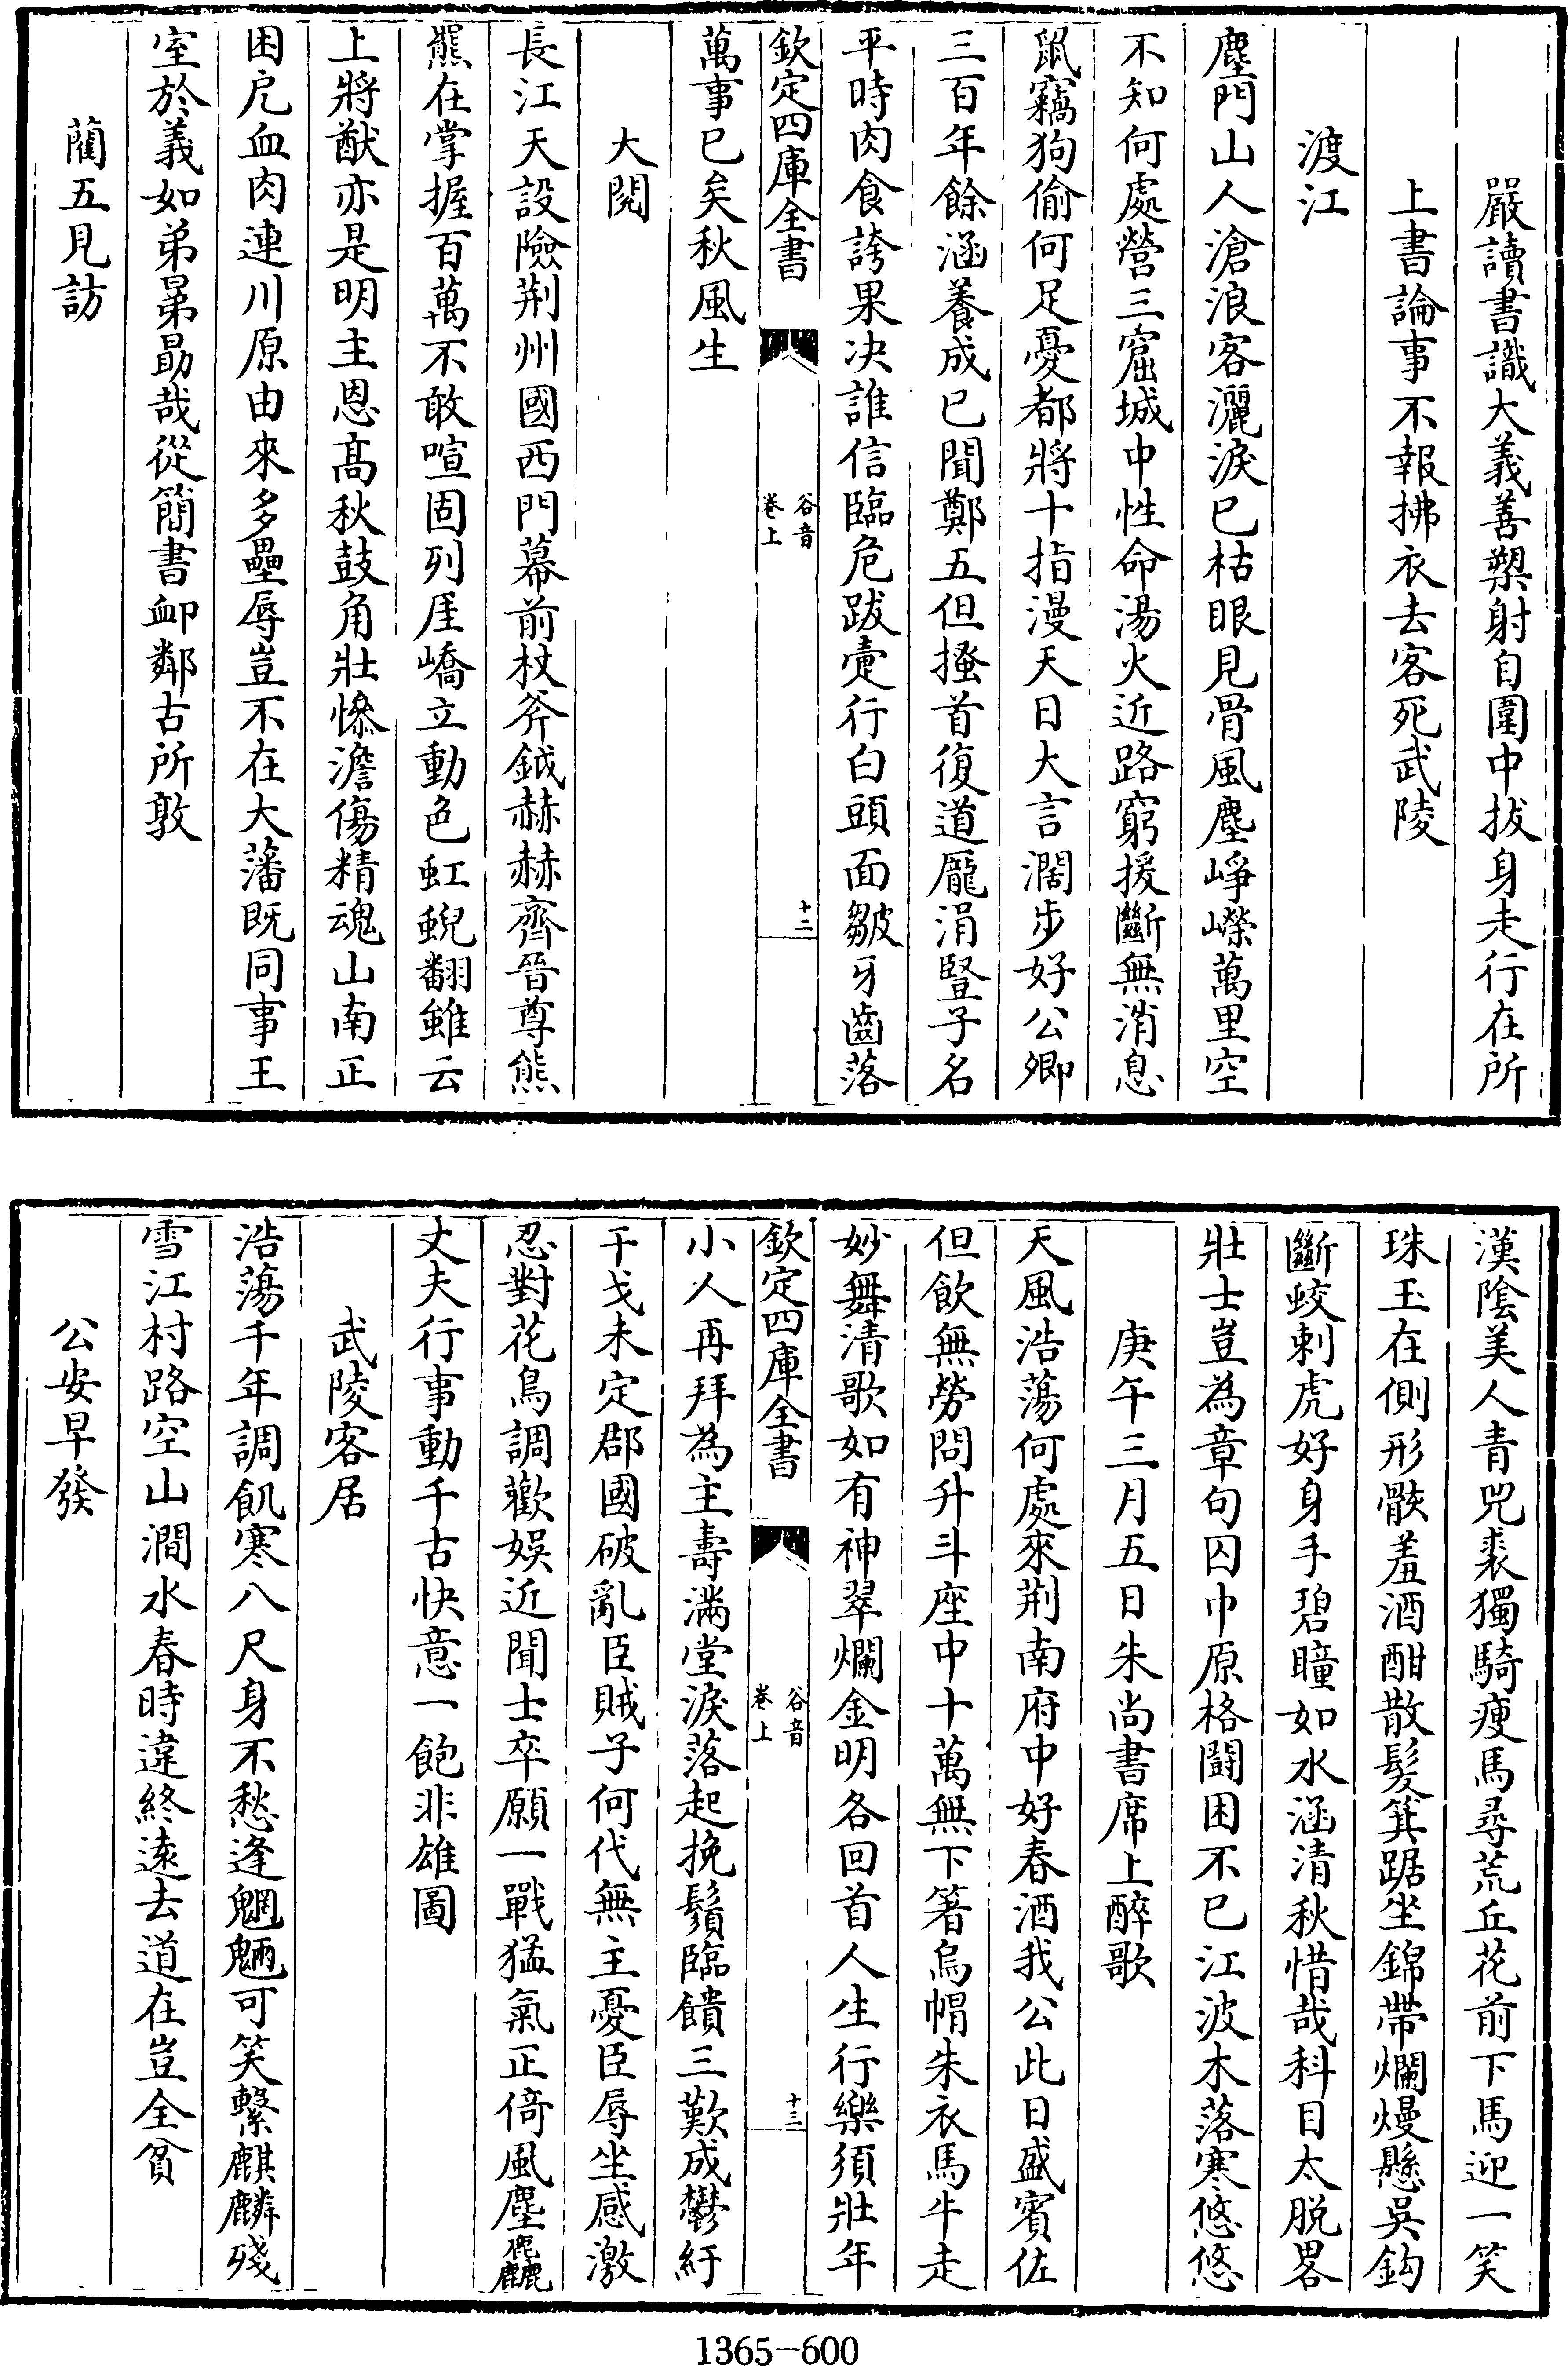 嚴讀書識大義善槊射自圍中拔身走行在所
上書論事不報拂衣去客死武陵
渡江
塵門山人滄浪客灑淚已枯眼見骨風塵崢嶸萬里空
不知何處營三窟城中性命湯火近路窮援斷無消息
鼠竊狗偷何足憂都將十指漫天日大言濶步好公卿
三百年餘涵養成已聞鄭五但搔首復道龐涓豎子名
平時肉食誇果决誰信臨危跋疐行白頭面皺牙齒落
欽定四庫全書
谷音
卷上
十二
萬事已矣秋風生
大閱
長江天設險荆州國西門幕前杖斧鉞赫赫齊晉尊熊
熊在掌握百萬不敢喧固列厓嶠立動色虹蜺翻雖云
上將猷亦是明主恩髙秋鼓角壯慘澹傷精魂山南正
困戹血肉連川原由來多壘辱豈不在大藩既同事王
室於義如弟晜勗哉從簡書卹鄰古所敦
藺五見訪
漢陰美人青兕裘獨騎瘦馬尋荒丘花前下馬迎一笑
珠玉在側形骸羞酒酣散髮箕踞坐錦帶爛熳懸吳鈎
斷蛟刺虎好身手碧瞳如水涵清秋惜哉科目太脱畧
壯士豈為章句囚中原格鬬困不已江波木落寒悠悠
庚午三月五日朱尚書席上醉歌
天風浩蕩何處來荆南府中好春酒我公此日盛賓佐
但飲無勞問升斗座中十萬無下箸烏帽朱衣馬牛走
妙舞清歌如有神翠爛金明各回首人生行樂須壯年
欽定四庫全書
谷音
卷上
十三
小人再拜為主壽滿堂淚落起挽鬚臨饋三歎成鬱紆
干戈未定郡國破亂臣賊子何代無主憂臣辱坐感激
忍對花鳥調歡娛近聞士卒願一戰猛氣正倚風塵麤
丈夫行事動千古快意一飽非雄圖
武陵客居
浩蕩千年調飢寒八尺身不愁逢魍魎可笑繫麒麟殘
雪江村路空山澗水春時違終遠去道在豈全貧
公安早發
1365-600